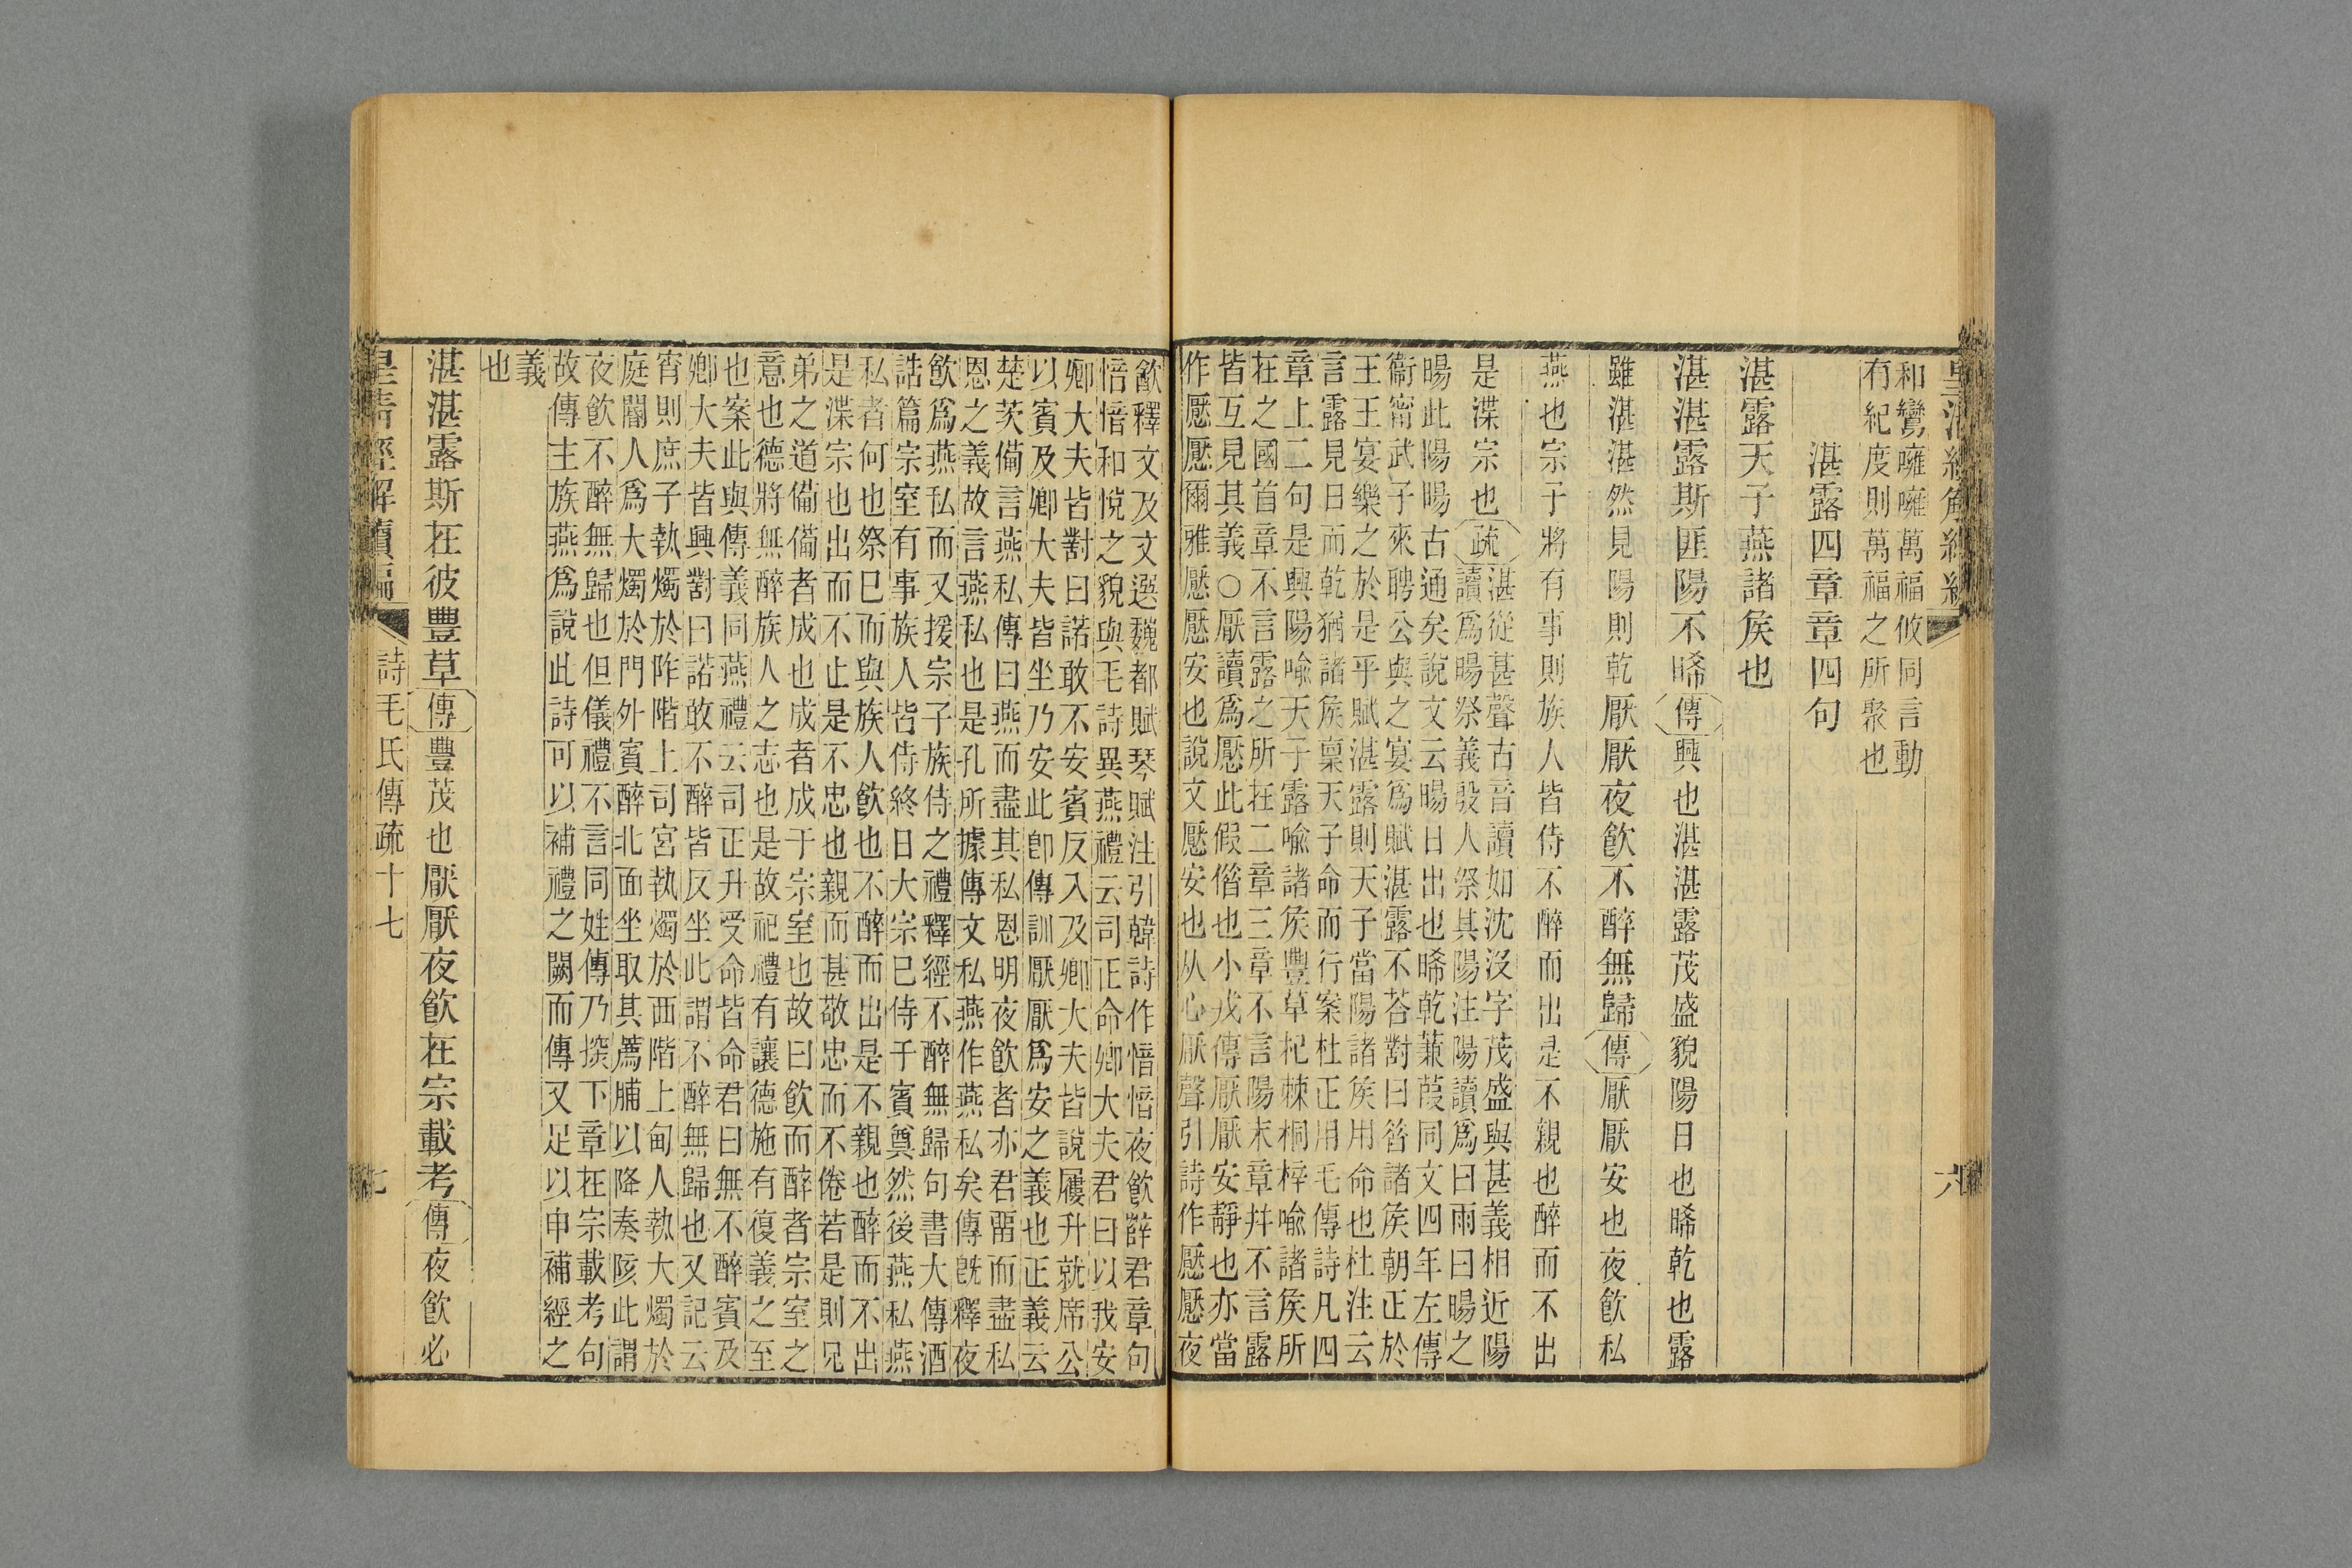 皇清經解續編
六
和鸞雝雝萬福攸同言動
有紀度則萬福之所聚也
湛露四章章四句
湛露天子燕諸矦也
湛湛露斯匪陽不晞傳興也湛湛露茂盛貌陽日也晞乾也露
雖湛湛然見陽則乾厭厭夜飮不醉無歸傳厭厭安也夜飮私
燕也宗子將有事則族人皆侍不醉而出是不親也醉而不出
是渫宗也疏
湛從甚聲古音讀如沈沒字茂盛與甚義相近陽
讀爲暘祭義殷人祭其陽注陽讀爲曰雨曰暘之
暘此陽暘古通矣說文云暘日出也晞乾蒹葭同文四年左傳
衞甯武子來聘公與之宴爲賦湛露不荅對曰昝諸矦朝正於
王王宴樂之於是乎賦湛露則天子當陽諸矦用命也杜注云
言露見日而乾猶諸矦稟天子命而行案杜正用毛傳詩凡四
章上二句是興陽喩天子露喩諸矦豐草杞棘桐梓喩諸矦所
在之國首章不言露之所在二章三章不言陽末章幷不言露
皆互見其義○厭讀爲懕此假偺也小戎傳厭厭安靜也亦當
作懕懕爾雅懕懕安也說文懕安也从心厭聲引詩作懕懕夜
飮釋文及文選魏都賦琴賦注引韓詩作愔愔夜飮薛君章句
愔愔和悅之貌與毛詩異燕禮云司正命卿大夫君曰以我安
卿大夫皆對曰諾敢不安賓反入及卿大夫皆說屨升就席公
以賓及卿大夫皆坐乃安此卽傳訓厭厭爲安之義也正義云
楚茨備言燕私傳曰燕而盡其私恩明夜飮者亦君畱而盡私
恩之義故言燕私也是孔所據傳文私燕作燕私矣傳旣釋夜
飮爲燕私而又援宗子族侍之禮釋經不醉無歸句書大傳酒
誥篇宗室有事族人皆侍終日大宗已侍于賓奠然後燕私燕
私者何也祭已而與族人飮也不醉而出是不親也醉而不出
是渫宗也出而不止是不忠也親而甚敬忠而不倦若是則兄
弟之道備備者成也成者成于宗室也故曰飮而醉者宗室之
意也德將無醉族人之志也是故祀禮有讓德施有復義之至
也案此與傳義同燕禮云司正升受命皆命君曰無不醉賓及
卿大夫皆興對曰諾敢不醉皆反坐此謂不醉無歸也又記云
宵則庶子執燭於阼階上司宮執燭於西階上甸人執大燭於
庭閽人爲大燭於門外賓醉北面坐取其薦脯以降奏陔此謂
夜飮不醉無歸也但儀禮不言同姓傳乃探下章在宗載考句
故傳主族燕爲說此詩可以補禮之闕而傳又足以申補經之
義
也
湛湛露斯在彼豐草傳豐茂也厭厭夜飮在宗載考傳夜飮必
皇清經解續編
詩毛氏傳疏十七
七